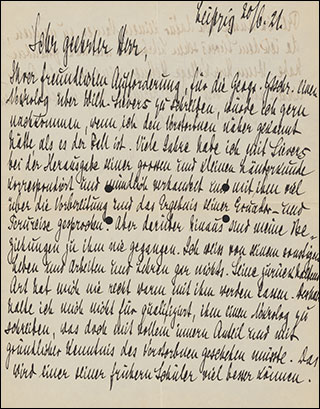 Leipzig 20/6.21.
Sehr geehrter Herr,
Ihrer freundlichen Aufforderung, für die Geogr. Ztschr. einen
Nekrolog über Wilh. Sievers zu schreiben, würde ich gern
nachkommen, wenn ich den Verstorbenen näher gekannt
hätte als es der Fall ist. Viele Jahre habe ich mit Sievers
bei der Herausgabe einer grossen und kleinen Länderkunde
korrespondiert und mündlich verhandelt und mit ihm viel
über die Vorbereitung und das Ergebnis einer Ecuador- und
Perureise gesprochen. Aber darüber hinaus sind meine Be-
ziehungen zu ihm nie gegangen. Ich weiss von seinem sonstigen
Leben und Arbeiten und Lehren gar nichts. Seine zurückhaltende
Art hat mich nie recht warm mit ihm werden lassen. Deshalb
halte ich mich nicht für qualifiziert, ihm einen Nekrolog zu
schreiben, was doch mit vollem innern Anteil und mit
gründlicher Kenntnis des Verstorbnen geschehen müsste. Das
wird einer seiner frühern Schüler viel besser können.